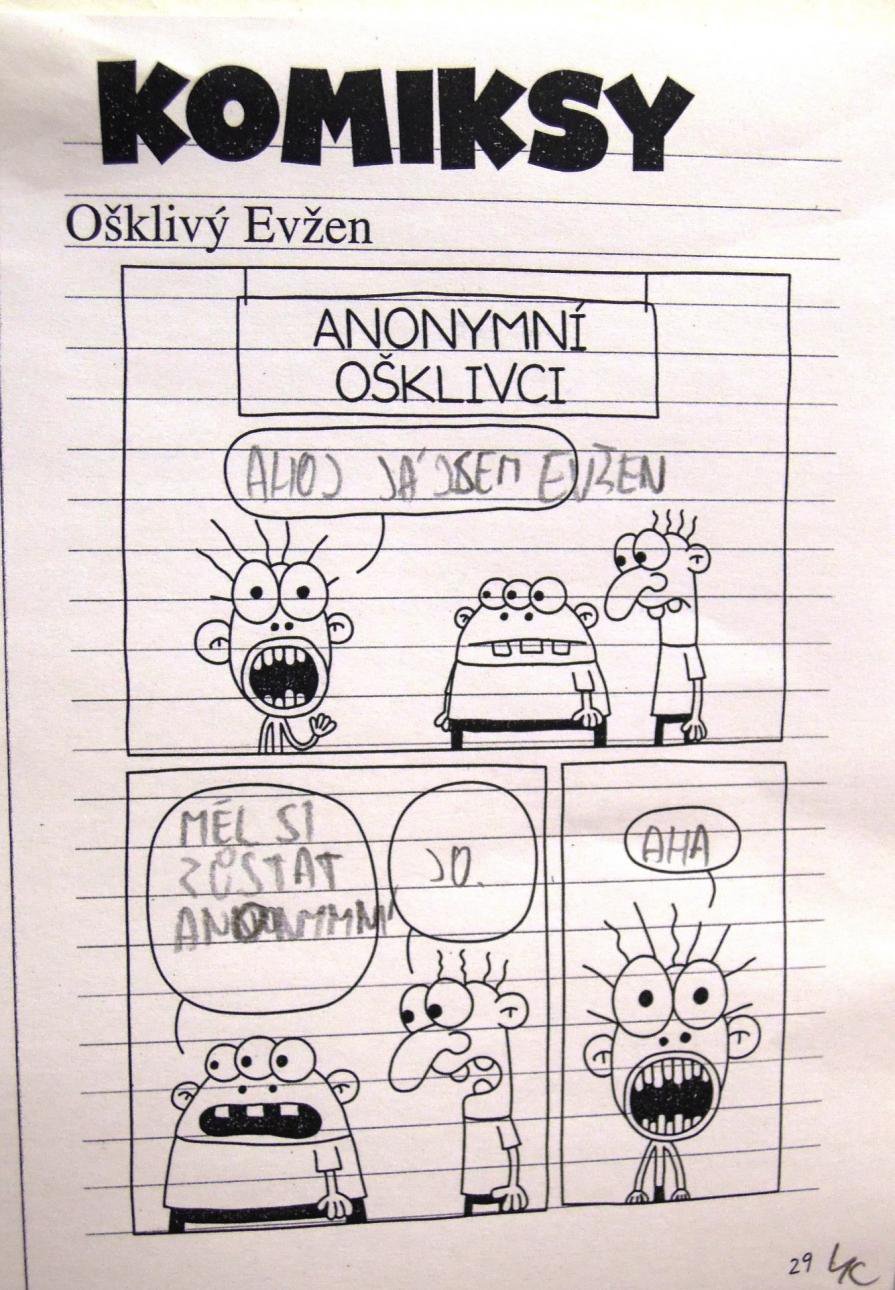 KOMIKSY
Ošklivý Evžen
ANONYMNÍ
OŠKLIVCI
AHOJ JÁ JSEM EVŽEN
MĚL SI
ZŮSTAT
ANONYMNÍ
JO.
AHA
29